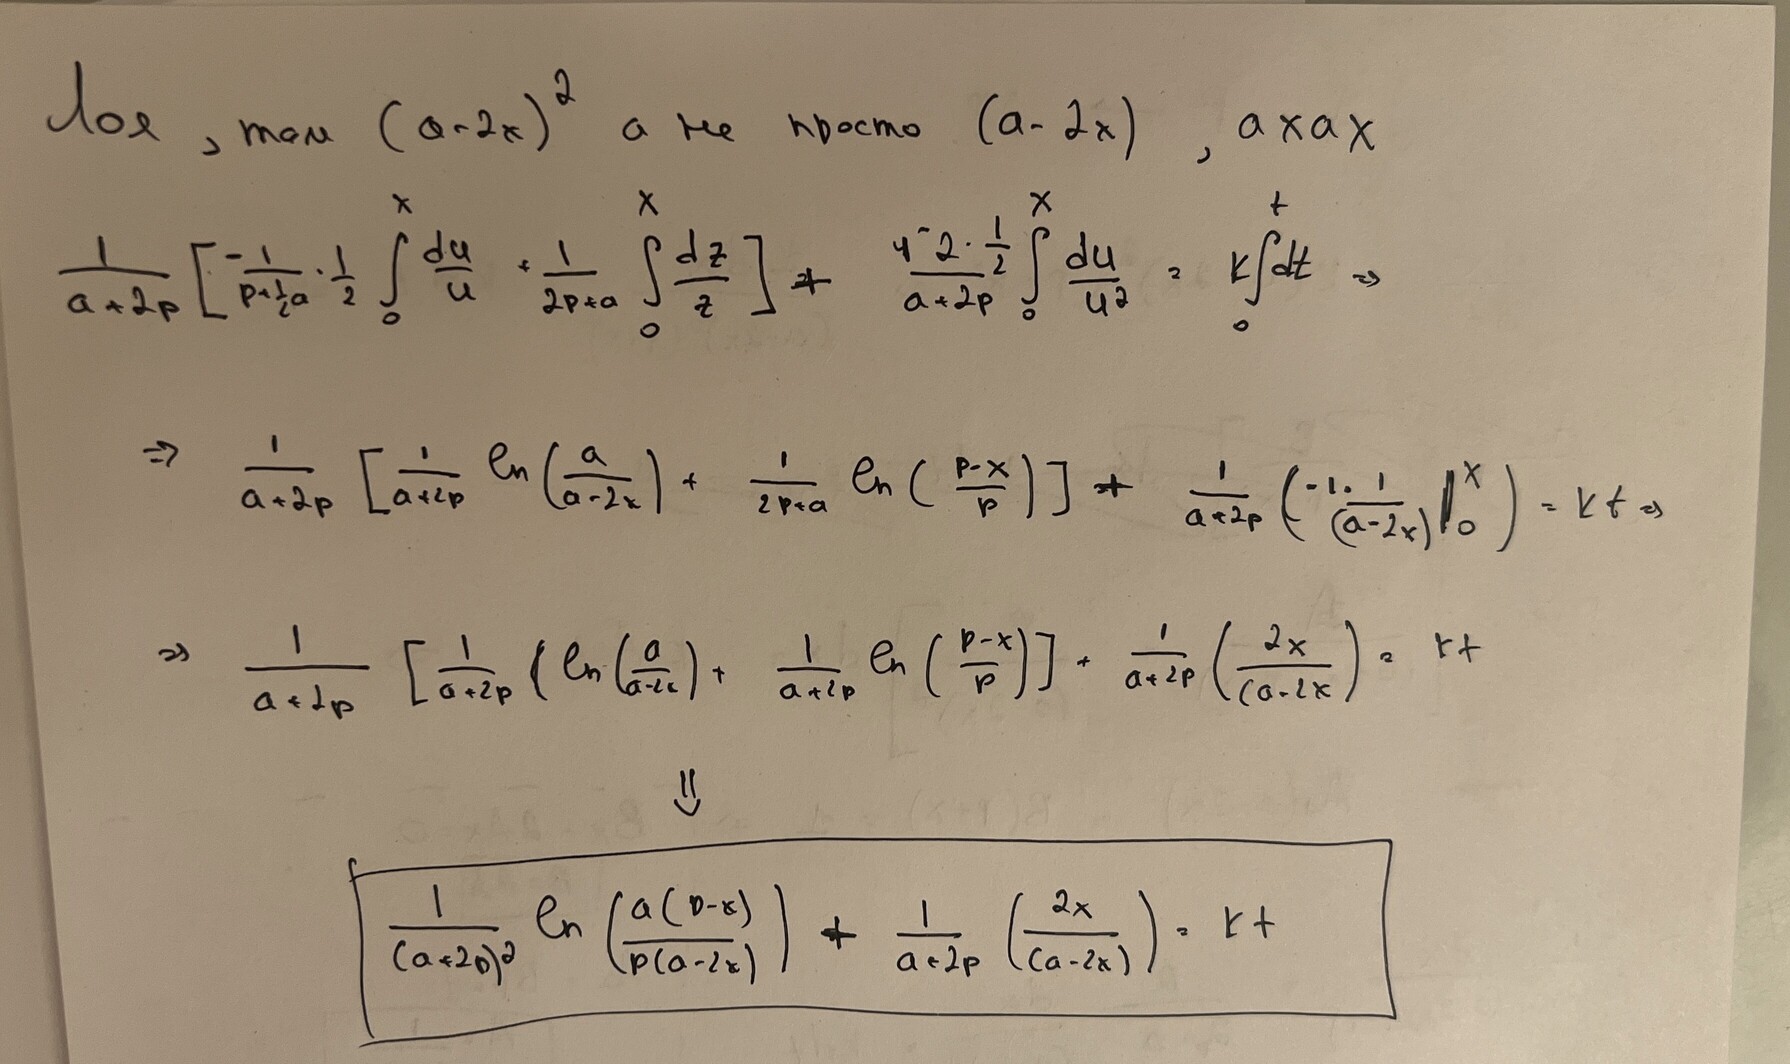 Лол, там (a-2x)² а не просто (a-2x), ахах
1/(a+2p) [ -1/(p+½a) · 1/2 ∫₀ˣ du/u + 1/(2p+a) ∫₀ˣ dz/z ] + 4-2·½/(a+2p) ∫₀ˣ du/u² = k∫₀ᵗ dt =>
=> 1/(a+2p) [ 1/(a+2p) ln (a/(a-2x)) + 1/(2p+a) ln ((p-x)/p) ] + 1/(a+2p) ( -1·1/(a-2x) |₀ˣ ) = kt =>
=> 1/(a+2p) [ 1/(a+2p) ( ln (a/(a-2x)) + 1/(a+2p) ln ((p-x)/p) ] + 1/(a+2p) ( 2x/(a-2x ) = kt
⇓
1/(a+2p)² ln ( a(p-x)/p(a-2x) ) + 1/(a+2p) ( 2x/(a-2x) ) = kt